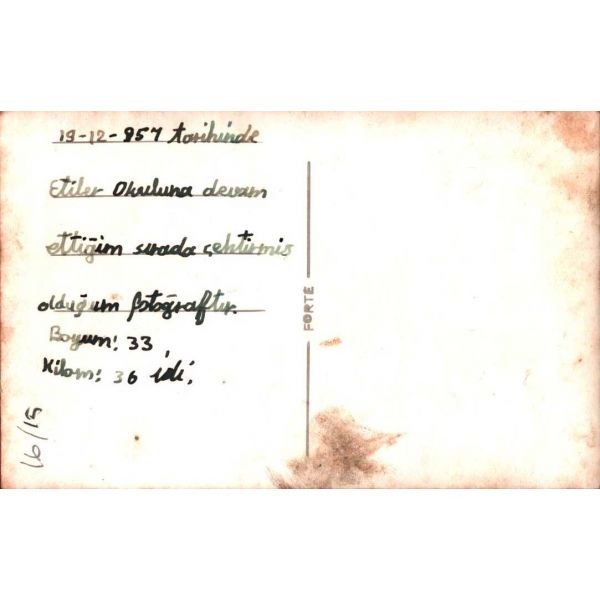 19-12-957 tarihinde
Etiler Okuluna devam
ettiğim sırada çektirmiş
olduğum fotoğraftır.
Boyum: 33
Kilom: 36 idi.
16/15
FORTE